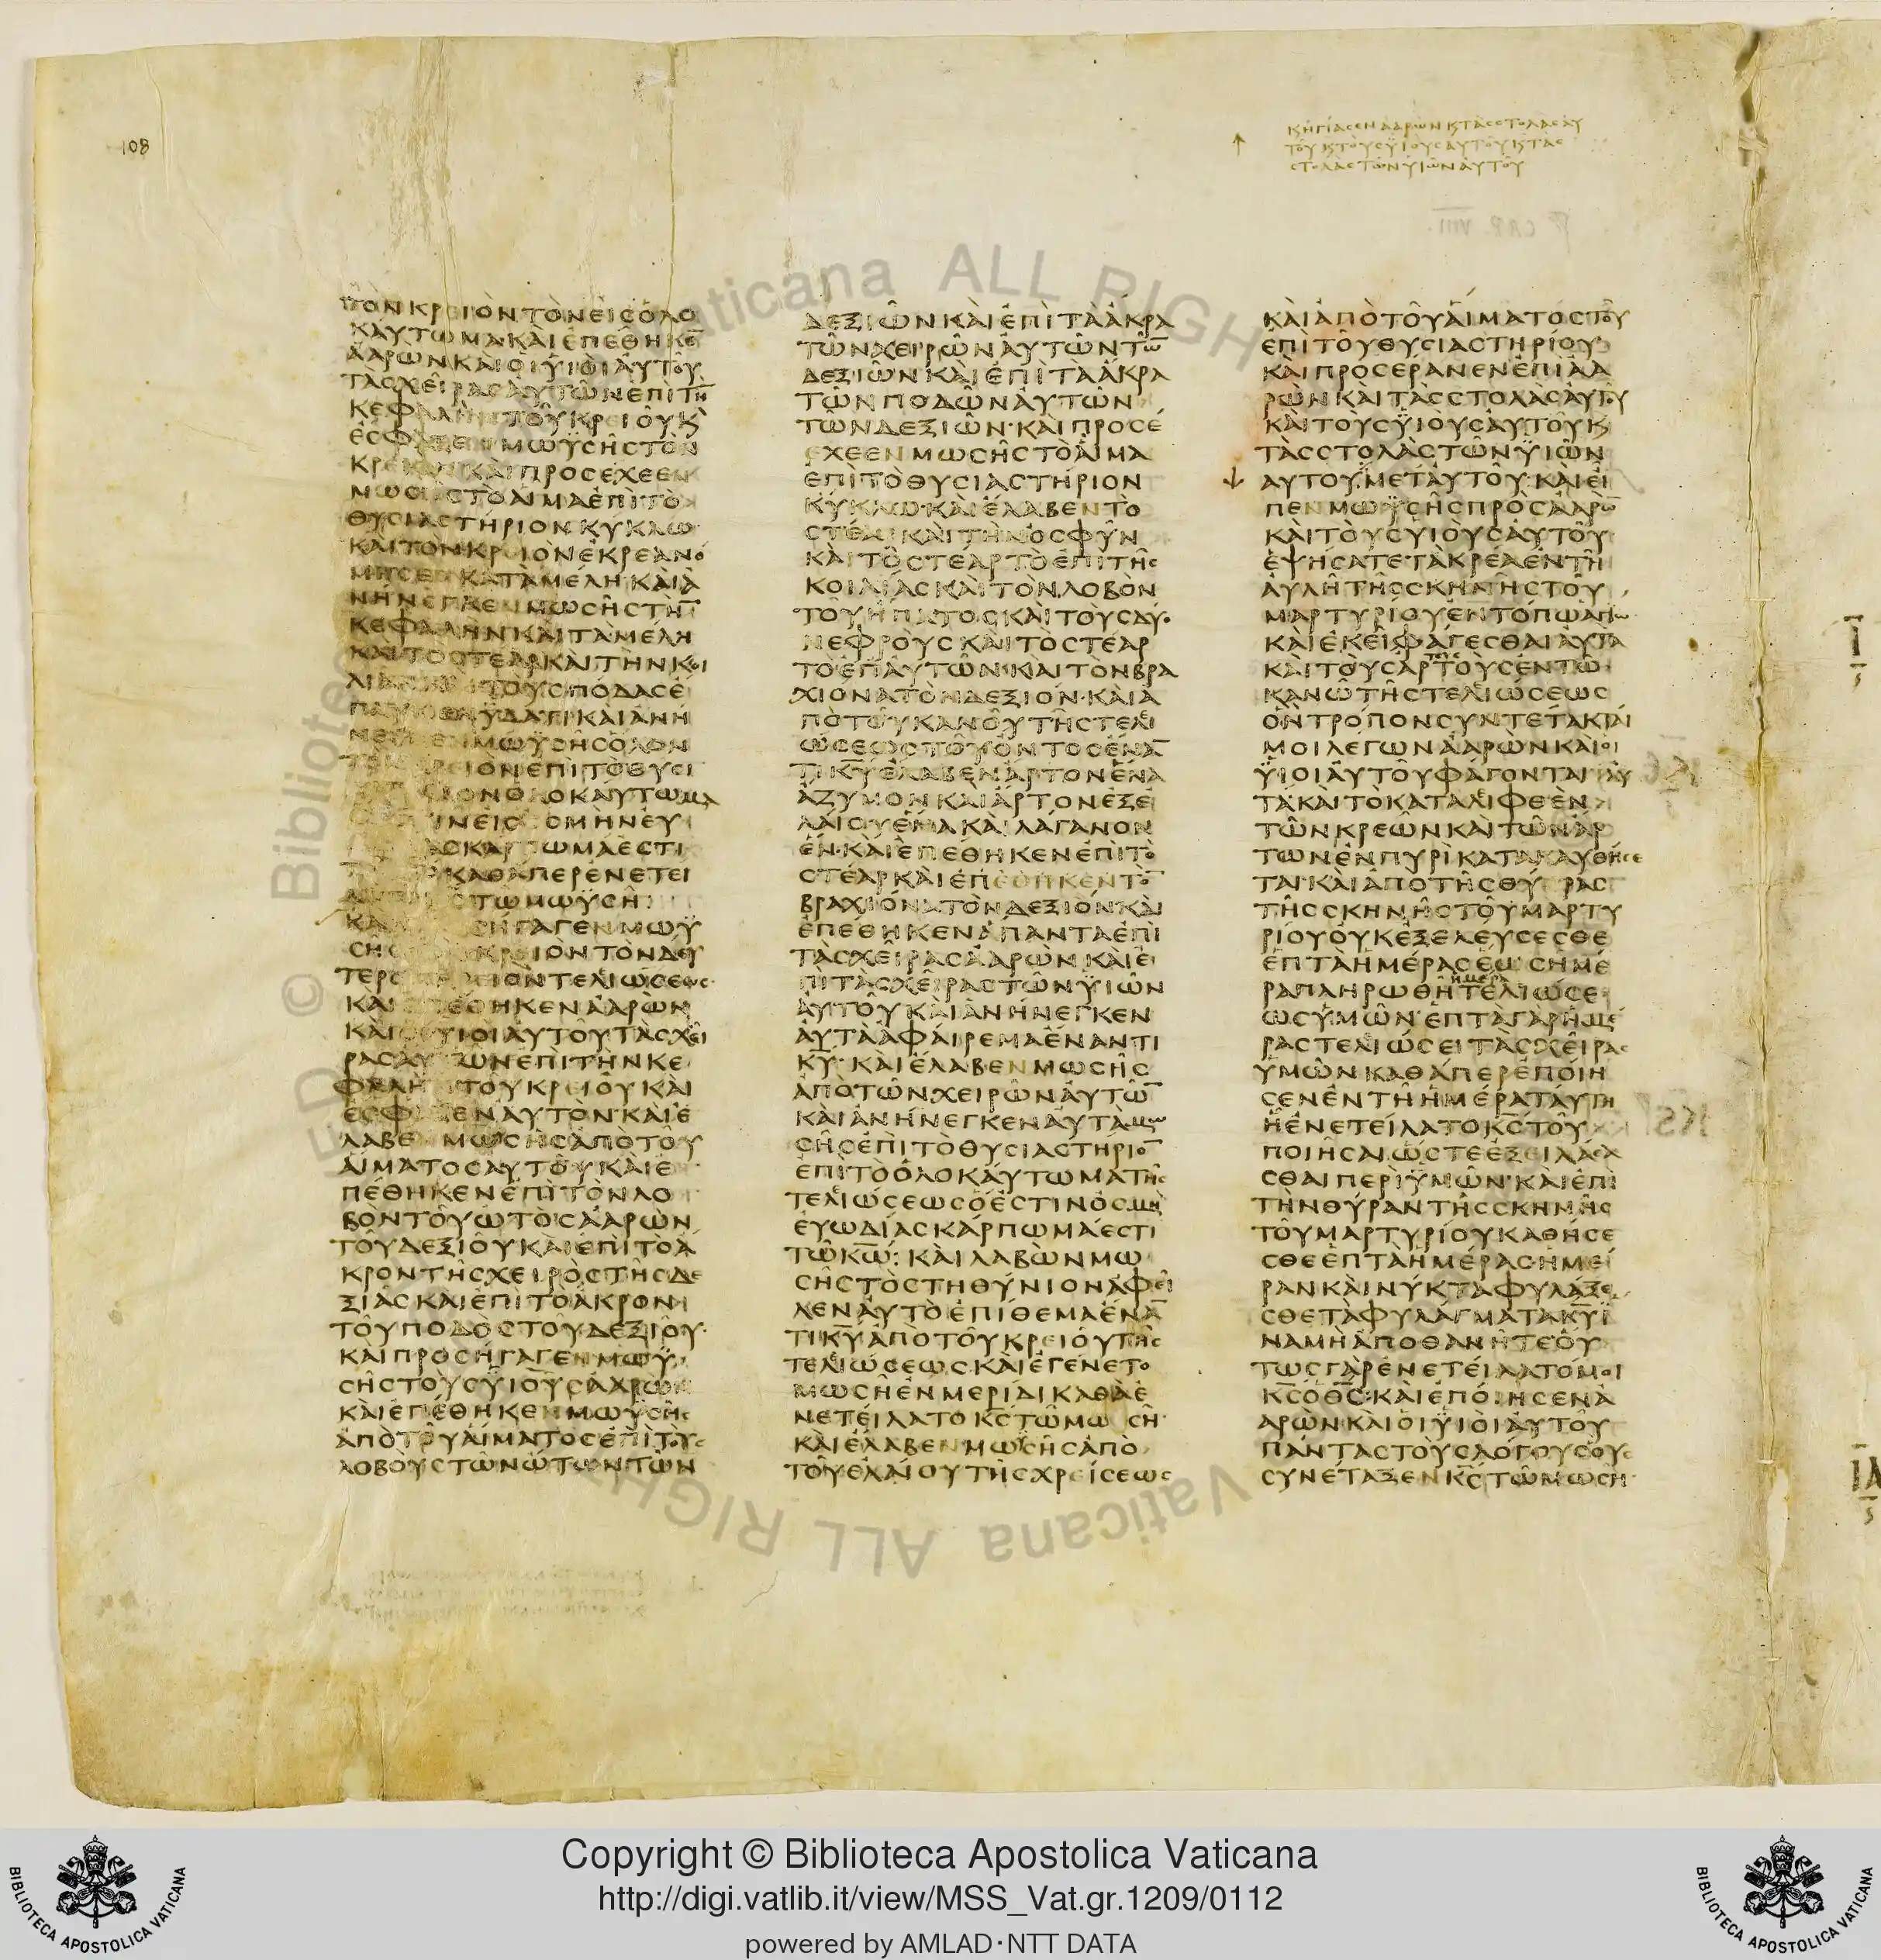 108
κ ἡγίασεν ἀαρὼν κ τὰς στολὰς αὐ
τοῦ κ τοὺς ϋἱοὺς αὐτοῦ κ τὰς
στολὰς τῶν ϋἱῶν αὐτοῦ
ΤΟΝ ΚΡΕΙΟΝ ΤΟΝ ΕΙΣ ΟΛΟ
ΚΑΥΤΩΜΑ ΚΑΙ ΕΠΕΘΗΚΕ̅
ΑΑΡΩΝ ΚΑΙ ΟΙ ΥΙΟΙ ΑΥΤΟΥ
ΤΑΣ ΧΕΙΡΑΣ ΑΥΤΩΝ ΕΠΙ ΤΗ̅
ΚΕΦΑΛΗΝ ΤΟΥ ΚΡΕΙΟΥ Κ
ΕΣΦΑΞΕΝ ΜΩΫΣΗΣ ΤΟΝ
ΚΡΕΙΟΝ ΚΑΙ ΠΡΟΣΕΧΕΕΝ
ΜΩΣΗΣ ΤΟ ΑΙΜΑ ΕΠΙ ΤΟ
ΘΥΣΙΑΣΤΗΡΙΟΝ ΚΥΚΛΩ
ΚΑΙ ΤΟΝ ΚΡΕΙΟΝ ΕΚΡΕΑΝΟ
ΜΗΣΕΝ ΚΑΤΑ ΜΕΛΗ ΚΑΙ Α
ΝΗΝΕΓΚΕΝ ΜΩΣΗΣ ΤΗ̅
ΚΕΦΑΛΗΝ ΚΑΙ ΤΑ ΜΕΛΗ
ΚΑΙ ΤΟ ΣΤΕΑΡ ΚΑΙ ΤΗΝ ΚΟΙ
ΛΙΑΝ ΚΑΙ ΤΟΥΣ ΠΟΔΑΣ Ε
ΠΛΥΝΕΝ ΫΔΑΤΙ ΚΑΙ ΑΝΗ
ΝΕΓΚΕΝ ΜΩΫΣΗΣ ΟΛΟΝ
ΤΟΝ ΚΡΕΙΟΝ ΕΠΙ ΤΟ ΘΥΣΙ
ΑΣΤΗΡΙΟΝ ΟΛΟΚΑΥΤΩΜΑ
ΕΣΤΙΝ ΕΙΣ ΟΣΜΗΝ ΕΥ
ΩΔΙΑΣ ΚΑΡΠΩΜΑ ΕΣΤΙ
ΚΑΘΑΠΕΡ ΕΝΕΤΕΙ
ΛΑΤΟ ΚΣ ΤΩ ΜΩΫΣΗ
ΚΑΙ ΠΡΟΣΗΓΑΓΕΝ ΜΩΫ
ΣΗΣ ΤΟΝ ΚΡΕΙΟΝ ΤΟΝ ΔΕΥ
ΤΕΡΟΝ ΚΡΕΙΟΝ ΤΕΛΕΙΩΣΕΩΣ
ΚΑΙ ΕΠΕΘΗΚΕΝ ΑΑΡΩΝ
ΚΑΙ ΟΙ ΥΙΟΙ ΑΥΤΟΥ ΤΑΣ ΧΕΙ
ΡΑΣ ΑΥΤΩΝ ΕΠΙ ΤΗΝ ΚΕ
ΦΑΛΗΝ ΤΟΥ ΚΡΕΙΟΥ ΚΑΙ
ΕΣΦΑΞΕΝ ΑΥΤΟΝ ΚΑΙ Ε
ΛΑΒΕΝ ΜΩΣΗΣ ΑΠΟ ΤΟΥ
ΑΙΜΑΤΟΣ ΑΥΤΟΥ ΚΑΙ Ε
ΠΕΘΗΚΕΝ ΕΠΙ ΤΟΝ ΛΟ
ΒΟΝ ΤΟΥ ΩΤΟΣ ΑΑΡΩΝ
ΤΟΥ ΔΕΞΙΟΥ ΚΑΙ ΕΠΙ ΤΟ Α
ΚΡΟΝ ΤΗΣ ΧΕΙΡΟΣ ΤΗΣ ΔΕ
ΞΙΑΣ ΚΑΙ ΕΠΙ ΤΟ ΑΚΡΟΝ
ΤΟΥ ΠΟΔΟΣ ΤΟΥ ΔΕΞΙΟΥ
ΚΑΙ ΠΡΟΣΗΓΑΓΕΝ ΜΩΫ
ΣΗΣ ΤΟΥΣ ΫΙΟΥΣ ΑΑΡΩΝ
ΚΑΙ ΕΠΕΘΗΚΕΝ ΜΩΥΣΗΣ
ΑΠΟ ΤΟΥ ΑΙΜΑΤΟΣ ΕΠΙ ΤΟΥΣ
ΛΟΒΟΥΣ ΤΩΝ ΩΤΩΝ ΤΩΝ
ΔΕΞΙΩΝ ΚΑΙ ΕΠΙ ΤΑ ΑΚΡΑ
ΤΩΝ ΧΕΙΡΩΝ ΑΥΤΩΝ ΤΩ̅
ΔΕΞΙΩΝ ΚΑΙ ΕΠΙ ΤΑ ΑΚΡΑ
ΤΩΝ ΠΟΔΩΝ ΑΥΤΩΝ
ΤΩΝ ΔΕΞΙΩΝ· ΚΑΙ ΠΡΟΣΕ
ΧΕΕΝ ΜΩΣΗΣ ΤΟ ΑΙΜΑ
ΕΠΙ ΤΟ ΘΥΣΙΑΣΤΗΡΙΟΝ
ΚΥΚΛΩ· ΚΑΙ ΕΛΑΒΕΝ ΤΟ
ΣΤΕΑΡ ΚΑΙ ΤΗΝ ΟΣΦΥΝ
ΚΑΙ ΤΟ ΣΤΕΑΡ ΤΟ ΕΠΙ ΤΗΣ
ΚΟΙΛΙΑΣ ΚΑΙ ΤΟΝ ΛΟΒΟΝ
ΤΟΥ ΗΠΑΤΟΣ ΚΑΙ ΤΟΥΣ ΔΥΟ
ΝΕΦΡΟΥΣ ΚΑΙ ΤΟ ΣΤΕΑΡ
ΤΟ ΕΠ ΑΥΤΩΝ ΚΑΙ ΤΟΝ ΒΡΑ
ΧΙΟΝΑ ΤΟΝ ΔΕΞΙΟΝ· ΚΑΙ Α
ΠΟ ΤΟΥ ΚΑΝΟΥ ΤΗΣ ΤΕΛΕΙ
ΩΣΕΩΣ ΤΟΥ ΟΝΤΟΣ ΕΝΑ̅
ΤΙ Κ̅Υ̅ ΕΛΑΒΕΝ ΑΡΤΟΝ ΕΝΑ
ΑΖΥΜΟΝ ΚΑΙ ΑΡΤΟΝ ΕΞ Ε
ΛΑΙΟΥ ΕΝΑ ΚΑΙ ΛΑΓΑΝΟΝ
ΕΝ· ΚΑΙ ΕΠΕΘΗΚΕΝ ΕΠΙ ΤΟ
ΣΤΕΑΡ ΚΑΙ ΕΠΕΘΗΚΕΝ ΤΟ̅
ΒΡΑΧΙΟΝΑ ΤΟΝ ΔΕΞΙΟΝ ΚΑΙ
ΕΠΕΘΗΚΕΝ ΑΠΑΝΤΑ ΕΠΙ
ΤΑΣ ΧΕΙΡΑΣ ΑΑΡΩΝ ΚΑΙ Ε
ΠΙ ΤΑΣ ΧΕΙΡΑΣ ΤΩΝ ΫΙΩΝ
ΑΥΤΟΥ ΚΑΙ ΑΝΗΝΕΓΚΕΝ
ΑΥΤΑ ΑΦΑΙΡΕΜΑ ΕΝΑΝΤΙ
Κ̅Υ̅· ΚΑΙ ΕΛΑΒΕΝ ΜΩΣΗΣ
ΑΠΟ ΤΩΝ ΧΕΙΡΩΝ ΑΥΤΩ̅
ΚΑΙ ΑΝΗΝΕΓΚΕΝ ΑΥΤΑ ΜΩ
ΣΗΣ ΕΠΙ ΤΟ ΘΥΣΙΑΣΤΗΡΙΟ̅
ΕΠΙ ΤΟ ΟΛΟΚΑΥΤΩΜΑ ΤΗΣ
ΤΕΛΕΙΩΣΕΩΣ Ο ΕΣΤΙΝ ΟΣΜΗ
ΕΥΩΔΙΑΣ ΚΑΡΠΩΜΑ ΕΣΤΙ
ΤΩ Κ̅Ω̅· ΚΑΙ ΛΑΒΩΝ ΜΩ
ΣΗΣ ΤΟ ΣΤΗΘΥΝΙΟΝ ΑΦΕΙ
ΛΕΝ ΑΥΤΟ ΕΠΙΘΕΜΑ ΕΝΑ̅
ΤΙ Κ̅Υ̅ ΑΠΟ ΤΟΥ ΚΡΕΙΟΥ ΤΗΣ
ΤΕΛΕΙΩΣΕΩΣ ΚΑΙ ΕΓΕΝΕΤΟ
ΜΩΣΗ ΕΝ ΜΕΡΙΔΙ ΚΑΘΑ Ε
ΝΕΤΕΙΛΑΤΟ Κ̅Σ̅ ΤΩ ΜΩΣΗ·
ΚΑΙ ΕΛΑΒΕΝ ΜΩΥΣΗΣ ΑΠΟ
ΤΟΥ ΕΛΑΙΟΥ ΤΗΣ ΧΡΕΙΣΕΩΣ
ΚΑΙ ΑΠΟ ΤΟΥ ΑΙΜΑΤΟΣ ΤΟΥ
ΕΠΙ ΤΟΥ ΘΥΣΙΑΣΤΗΡΙΟΥ
ΚΑΙ ΠΡΟΣΕΡΑΝΕΝ ΕΠΙ ΑΑ
ΡΩΝ ΚΑΙ ΤΑΣ ΣΤΟΛΑΣ ΑΥΤΟΥ
ΚΑΙ ΤΟΥΣ ΫΙΟΥΣ ΑΥΤΟΥ Κ
ΤΑΣ ΣΤΟΛΑΣ ΤΩΝ ΫΙΩΝ
ΑΥΤΟΥ ΜΕΤ ΑΥΤΟΥ· ΚΑΙ ΕΙ
ΠΕΝ ΜΩΥΣΗΣ ΠΡΟΣ ΑΑΡΩ̅
ΚΑΙ ΤΟΥΣ ΥΙΟΥΣ ΑΥΤΟΥ
ΕΨΗΣΑΤΕ ΤΑ ΚΡΕΑ ΕΝ ΤΗ
ΑΥΛΗ ΤΗΣ ΣΚΗΝΗΣ ΤΟΥ
ΜΑΡΤΥΡΙΟΥ ΕΝ ΤΟΠΩ ΑΓΙΩ
ΚΑΙ ΕΚΕΙ ΦΑΓΕΣΘΑΙ ΑΥΤΑ
ΚΑΙ ΤΟΥΣ ΑΡΤΟΥΣ ΤΟΥΣ ΕΝ ΤΩ
ΚΑΝΩ ΤΗΣ ΤΕΛΕΙΩΣΕΩΣ
ΟΝ ΤΡΟΠΟΝ ΣΥΝΤΕΤΑΚΤΑΙ
ΜΟΙ ΛΕΓΩΝ ΑΑΡΩΝ ΚΑΙ ΟΙ
ΫΙΟΙ ΑΥΤΟΥ ΦΑΓΟΝΤΑΙ ΑΥ
ΤΑ ΚΑΙ ΤΟ ΚΑΤΑΛΕΙΦΘΕΝ
ΤΩΝ ΚΡΕΩΝ ΚΑΙ ΤΩΝ ΑΡ
ΤΩΝ ΕΝ ΠΥΡΙ ΚΑΤΑΚΑΥΘΗΣΕ
ΤΑΙ· ΚΑΙ ΑΠΟ ΤΗΣ ΘΥΡΑΣ
ΤΗΣ ΣΚΗΝΗΣ ΤΟΥ ΜΑΡΤΥ
ΡΙΟΥ ΟΥΚ ΕΞΕΛΕΥΣΕΣΘΕ
ΕΠΤΑ ΗΜΕΡΑΣ ΕΩΣ ΗΜΕ
ΡΑ ΠΛΗΡΩΘΗ ΗΜΕΡΑ ΤΕΛΕΙΩΣΕ
ΩΣ ΥΜΩΝ· ΕΠΤΑ ΓΑΡ ΗΜΕ
ΡΑΣ ΤΕΛΕΙΩΣΕΙ ΤΑΣ ΧΕΙΡΑΣ
ΥΜΩΝ ΚΑΘΑΠΕΡ ΕΠΟΙΗ
ΣΕΝ ΕΝ ΤΗ ΗΜΕΡΑ ΤΑΥΤΗ
Η ΕΝΕΤΕΙΛΑΤΟ Κ̅Σ̅ ΤΟΥ
ΠΟΙΗΣΑΙ ΩΣΤΕ ΕΞΕΙΛΑΣΑ
ΣΘΑΙ ΠΕΡΙ ΫΜΩΝ· ΚΑΙ ΕΠΙ
ΤΗΝ ΘΥΡΑΝ ΤΗΣ ΣΚΗΝΗΣ
ΤΟΥ ΜΑΡΤΥΡΙΟΥ ΚΑΘΗΣΕ
ΣΘΕ ΕΠΤΑ ΗΜΕΡΑΣ ΗΜΕ
ΡΑΝ ΚΑΙ ΝΥΚΤΑ ΦΥΛΑΞΕ
ΣΘΕ ΤΑ ΦΥΛΑΓΜΑΤΑ Κ̅Υ̅ Ϊ
ΝΑ ΜΗ ΑΠΟΘΑΝΗΤΕ ΟΥ
ΤΩΣ ΓΑΡ ΕΝΕΤΕΙΛΑΤΟ ΜΟΙ
Κ̅Σ̅ Ο Θ̅Σ̅· ΚΑΙ ΕΠΟΙΗΣΕΝ Α
ΑΡΩΝ ΚΑΙ ΟΙ ΫΙΟΙ ΑΥΤΟΥ
ΠΑΝΤΑΣ ΤΟΥΣ ΛΟΓΟΥΣ ΟΥΣ
ΣΥΝΕΤΑΞΕΝ Κ̅Σ̅ ΤΩ ΜΩΣΗ·
Copyright © Biblioteca Apostolica Vaticana
http://digi.vatlib.it/view/MSS_Vat.gr.1209/0112
powered by AMLAD·NTT DATA